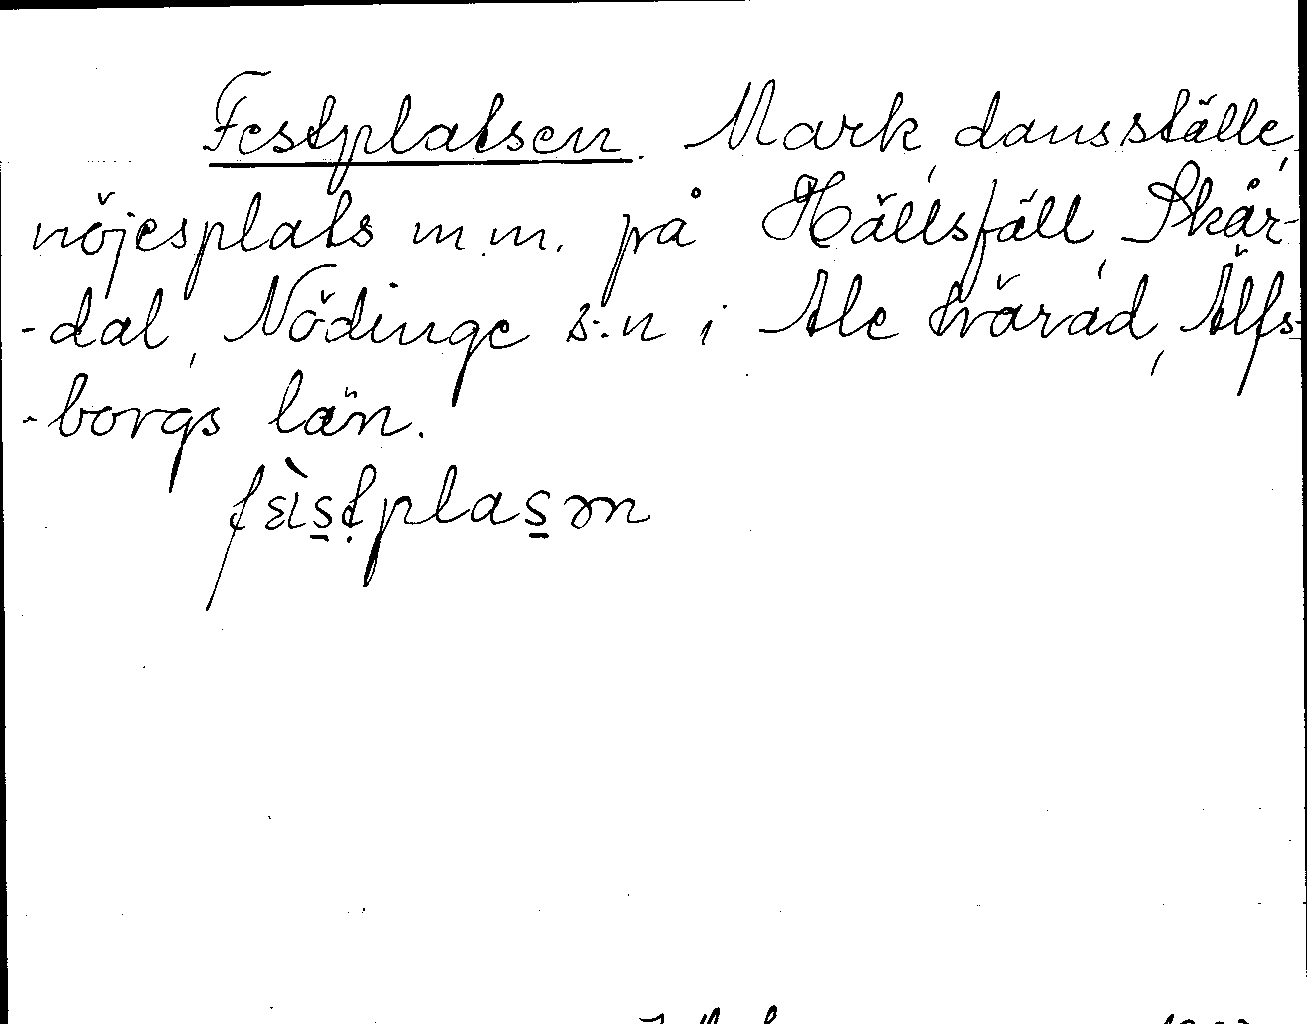 Festplatsen. Mark, dansställe,
nöjesplats m.m. på Hällsfäll, Skår-
-dal, Nödinge s:n i Ale härad, Älfs-
-borgs län.
fèistplasən